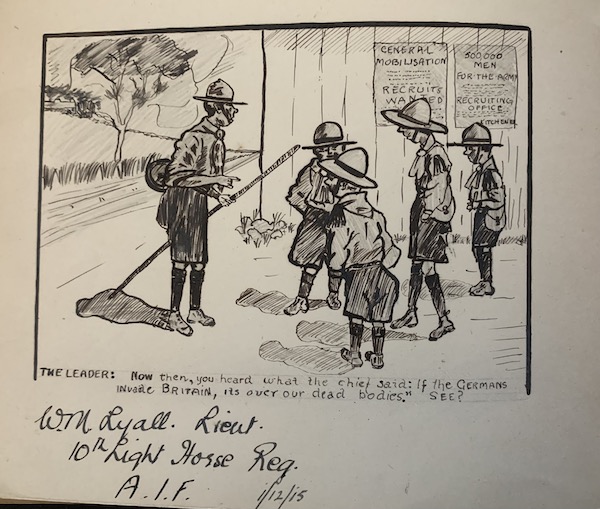 GENERAL
MOBILISATION
RECRUITS
WANTED
500,000
MEN
FOR THE ARMY
RECRUITING
OFFICE
KITCHENER
THE LEADER: Now then, you heard what the chief said: If the GERMANS
invade BRITAIN, its over our dead bodies." SEE?
W.M. Lyall. Lieut.
10th Light Horse Reg.
A.I.F. 1/12/15